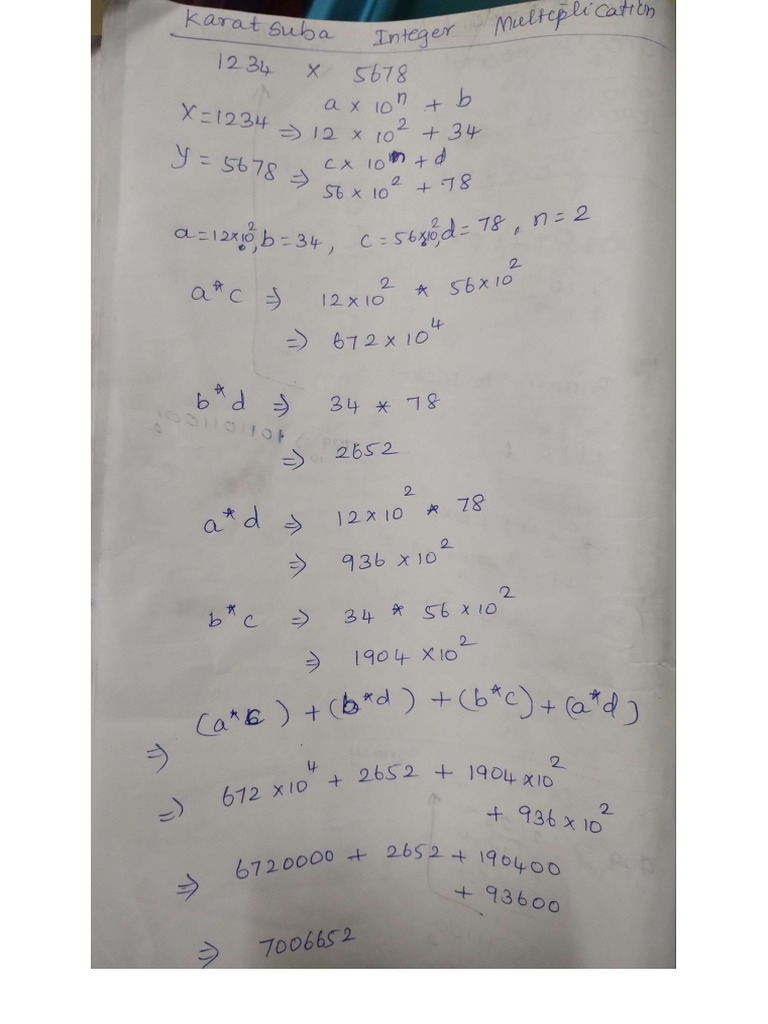 Karatsuba Integer Multiplication
1234 × 5678
a × 10ⁿ + b
X=1234 ⇒ 12 × 10² + 34
Y = 5678 ⇒ c × 10ⁿ + d
56 × 10² + 78
a=12×10², b=34, c=56×10², d=78, n=2
a*c ⇒ 12×10² * 56×10²
⇒ 672×10⁴
b*d ⇒ 34 * 78
⇒ 2652
a*d ⇒ 12×10² * 78
⇒ 936 ×10²
b*c ⇒ 34 * 56 ×10²
⇒ 1904 ×10²
⇒ (a*c) + (b*d) + (b*c) + (a*d)
⇒ 672 ×10⁴ + 2652 + 1904 ×10²
+ 936 × 10²
⇒ 6720000 + 2652 + 190400
+ 93600
⇒ 7006652